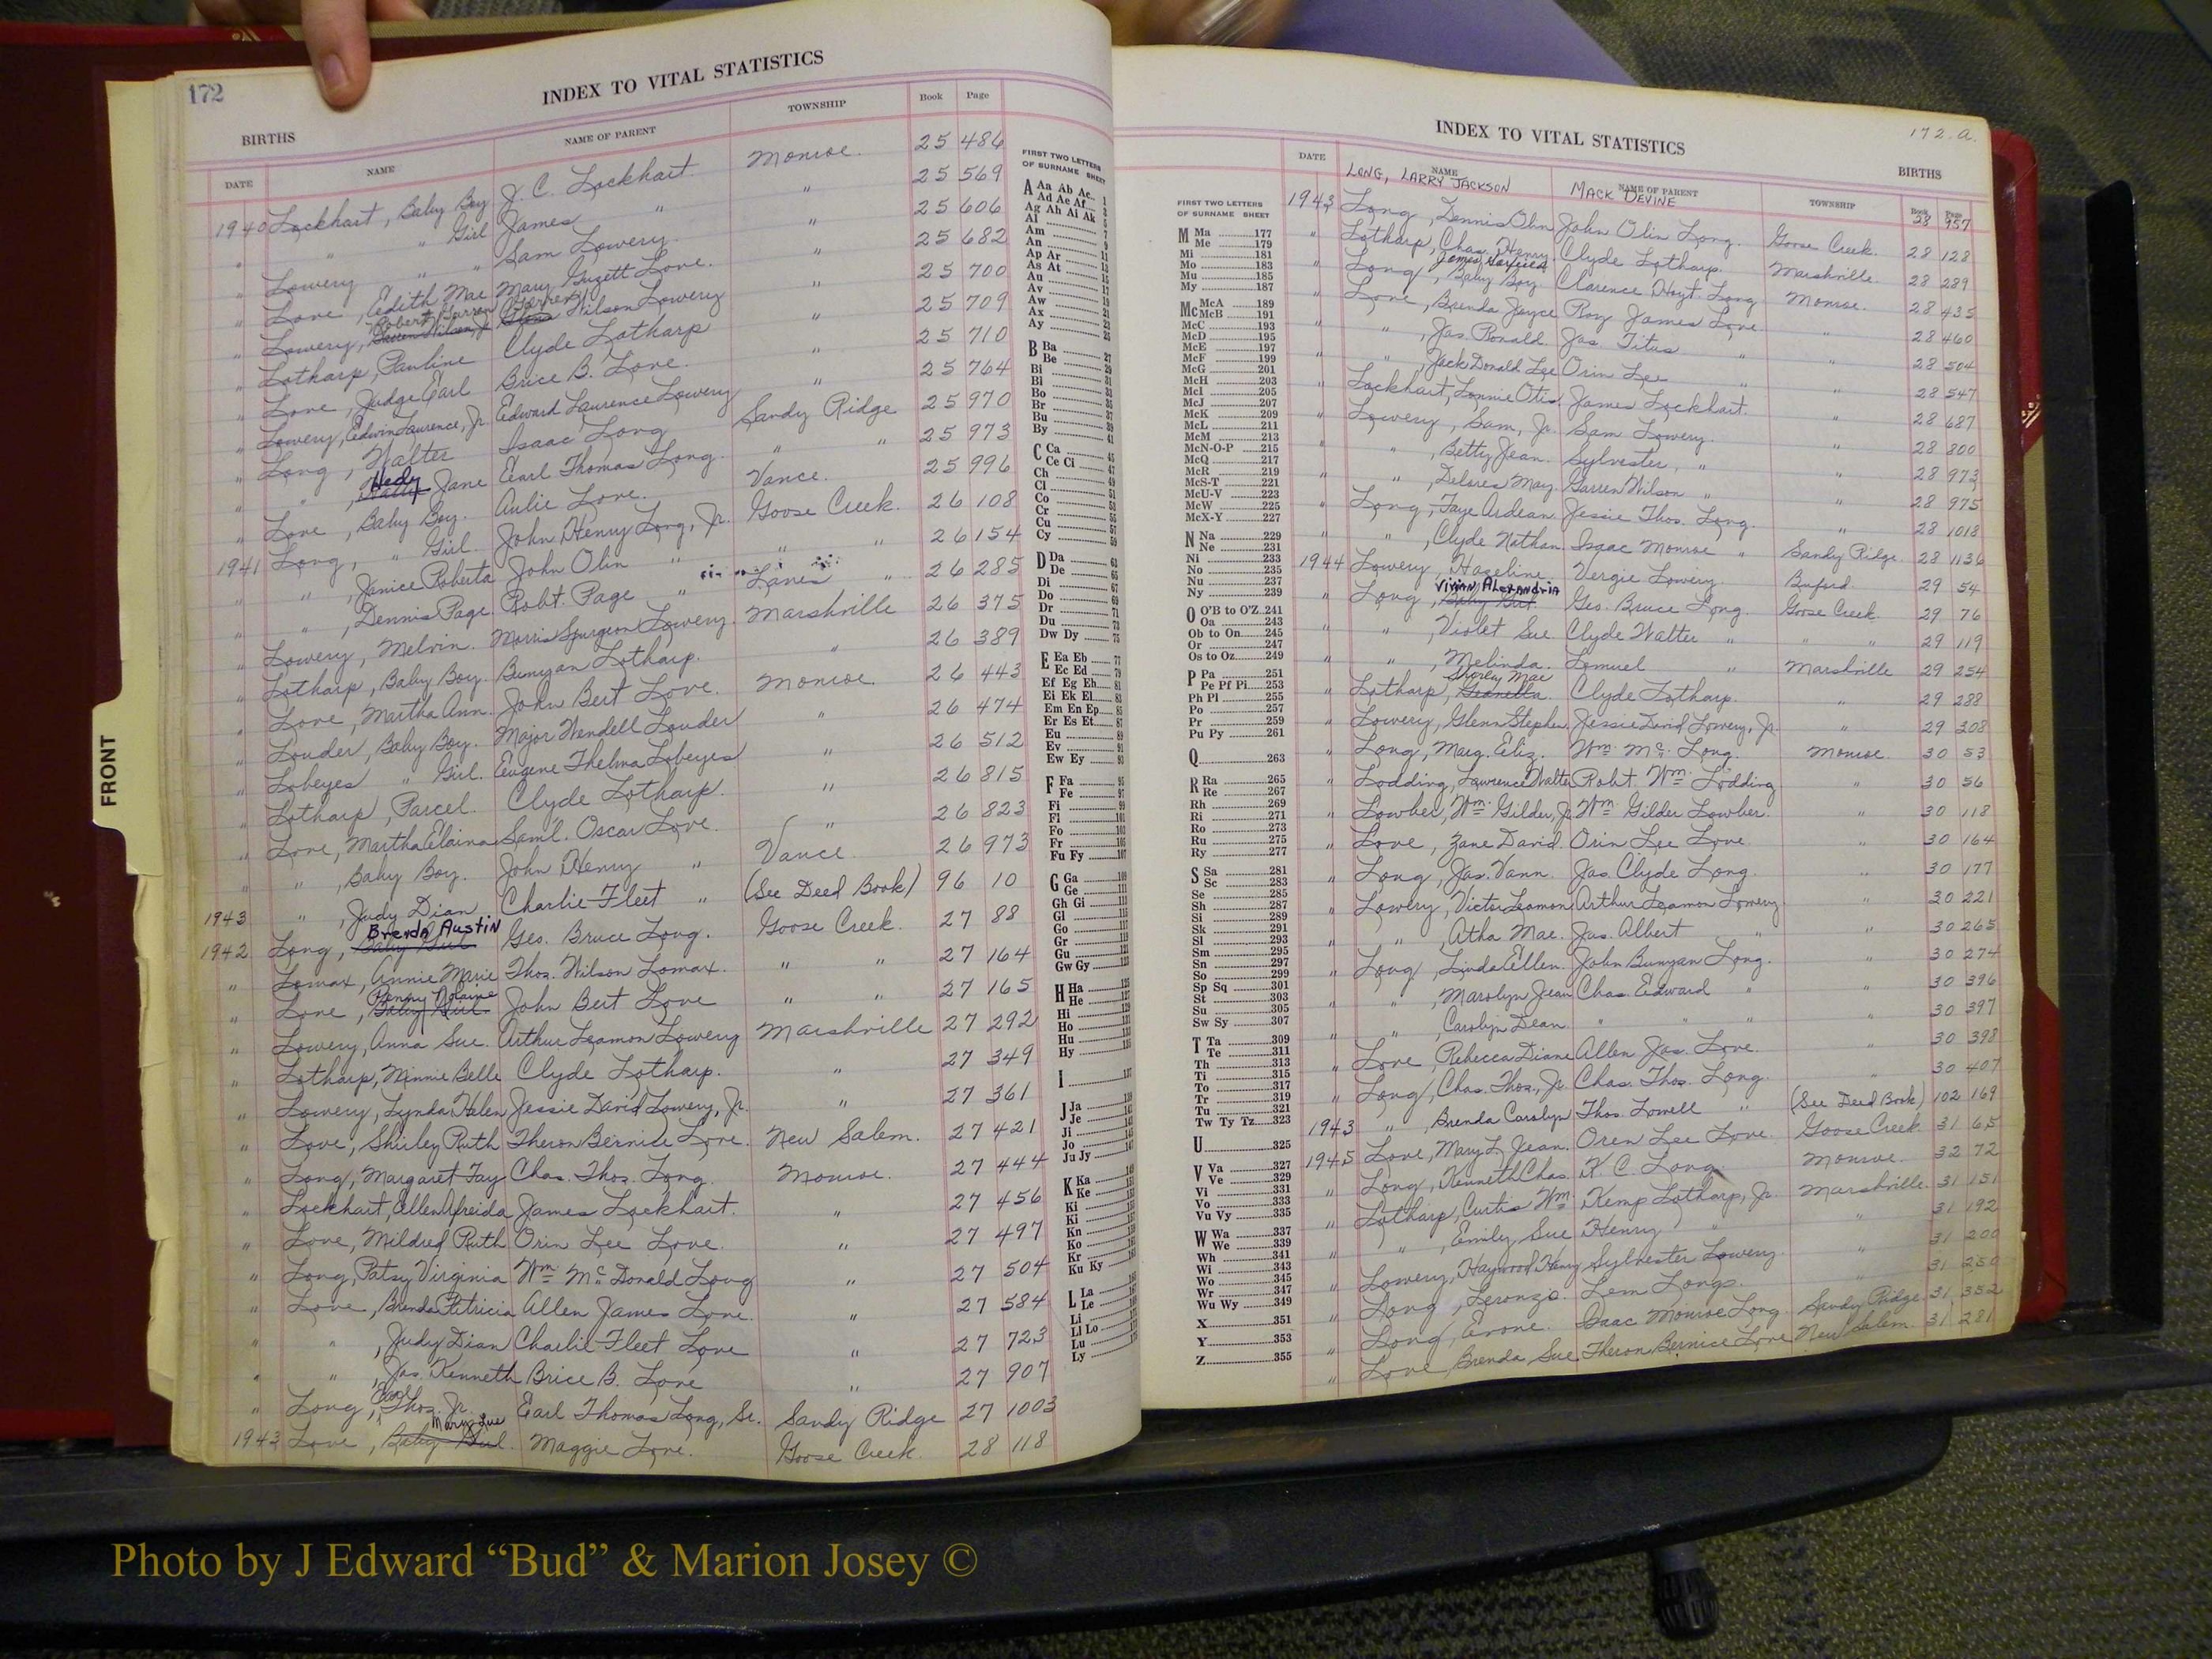 172
INDEX TO VITAL STATISTICS
BIRTHS
DATE NAME NAME OF PARENT TOWNSHIP Book Page
1940 Lockhart, Baby Boy J. C. Lockhart Monroe. 25 486
" " " Girl James " " 25 569
" Lowery " " Sam Lowery. " 25 606
" Love, Edith Mae Mary Guzett Love. " 25 682
" Lowery, Robert Garren Wilson Lowery " 25 700
" Lotharp, Pauline Clyde Lotharp " 25 709
" Love, Judge Earl Brice B. Love. " 25 710
" Lowery, Edwin Laurence, Jr. Edward Laurence Lowery " 25 764
" Long, Walter Isaac Long Sandy Ridge 25 970
" " , Hedy Jane Earl Thomas Long. " " 25 973
" Love, Baby Boy. Aulie Love. Vance. 25 996
1941 Long, " Girl. John Henry Long, Jr. Goose Creek. 26 108
" " , Janice Roberta John Olin " " " 26 154
" " , Dennis Page. Robt. Page " Lanes " 26 285
" Lowery, Melvin. Morris Spurgeon Lowery. Marshville 26 375
" Lotharp, Baby Boy. Bunyan Lotharp. " 26 389
" Love, Martha Ann. John Bert Love. Monroe. 26 443
" Louder, Baby Boy. Major Wendell Louder " 26 474
" Lobeyes " Girl. Eugene Thelma Lobeyes " 26 512
" Lotharp, Parcel. Clyde Lotharp. " 26 815
" Love, Martha Elaina Saml. Oscar Love. " 26 823
" " , Baby Boy. John Henry " Vance 26 973
1943 " , Judy Dian Charlie Fleet " (See Deed Book) 96 10
1942 Long, Brenda Austin Geo. Bruce Long. Goose Creek. 27 88
" Lomax, Annie Marie Thos. Wilson Lomax. " " 27 164
" Love, Baby Girl. John Bert Love " " 27 165
" Lowery, Anna Sue. Arthur Leamon Lowery Marshville 27 292
" Lotharp, Minnie Belle Clyde Lotharp. " 27 349
" Lowery, Lynda Helen Jessie David Lowery, Jr. " 27 361
" Love, Shirley Ruth Theron Bernice Love. New Salem. 27 421
" Long, Margaret Fay Chas. Thos. Long. Monroe. 27 444
" Lockhart, Ellen Afreida James Lockhart. " 27 456
" Love, Mildred Ruth Orin Lee Love. " 27 497
" Long, Patsy Virginia Wm. Mc. Donald Long " 27 504
" Love, Brenda Patricia Allen James Love. " 27 584
" " , Judy Dian Charlie Fleet Love " 27 723
" " , Jas. Kenneth Brice B. Love " 27 907
" Long, Thos. Jr. Earl Thomas Long, Sr. Sandy Ridge 27 1003
1943 Love, Baby Girl. Mary Sue Maggie Love. Goose Creek. 28 118
FRONT
FIRST TWO LETTERS
OF SURNAME SHEET
A Aa Ab Ac 1
Ad Ae Af 3
Ag Ah Ai Ak 5
Al 7
Am 9
An 11
Ap Ar 13
As At
Au
Av
Aw
Ax
Ay
B Ba 27
Be 29
Bi
Bl
Bo
Br
Bu 39
By 41
C Ca 45
Ce Ci 47
Ch 49
Cl 51
Co 53
Cr 55
Cu 57
Cy 59
D Da 61
De 63
Di 65
Do 67
Dr 69
Du 73
Dw Dy 75
E Ea Eb 77
Ec Ed 79
Ef Eg Eh 81
Ei Ek El 83
Em En Ep 85
Er Es Et 87
Eu 89
Ev 91
Ew Ey 93
F Fa 95
Fe 97
Fi 99
Fl 101
Fo 103
Fr 105
Fu Fy 107
G Ga 109
Ge 111
Gh Gi 113
Gl 115
Go 117
Gr 119
Gu 121
Gw Gy 123
H Ha 125
He 127
Hi
Ho
Hu
Hy
I 137
J Ja
Je
Ji
Jo
Ju Jy
K Ka
Ke
Ki
Kn
Ko
Kr
Ku Ky
L La
Le
Li
Ll Lo
Lu
Ly
172.a.
INDEX TO VITAL STATISTICS
BIRTHS
DATE NAME NAME OF PARENT TOWNSHIP Book Page
LONG, LARRY JACKSON MACK DEVINE 28 957
1943 Long, Dennis Olin John Olin Long. Goose Creek. 28 128
" Lotharp, Chas. Henry Clyde Lotharp. Marshville. 28 289
" Long, Baby Boy. Clarence Hoyt Long Monroe. 28 435
" Love, Brenda Joyce Roy James Love " 28 460
" " , Jas. Ronald. Jas. Titus " " 28 504
" " , Jack Donald Lee Orin Lee " " 28 547
" Lockhart, Lonnie Otis. James Lockhart. " 28 687
" Lowery, Sam, Jr. Sam Lowery. " 28 800
" " , Betty Jean. Sylvester, " " 28 973
" " , Delores May. Garren Wilson " " 28 975
" Long, Faye Ardean. Jessie Thos. Long. " 28 1018
" " , Clyde Nathan. Isaac Monroe " Sandy Ridge. 28 1136
1944 Lowery, Hazeline. Vergie Lowery. Buford. 29 54
" Long, Vivian Alexandria Geo. Bruce Long. Goose Creek. 29 76
" " , Violet Sue Clyde Walter " " " 29 119
" " , Melinda. Lemuel " Marshville 29 254
" Lotharp, Clyde Lotharp. " 29 288
" Lowery, Glenn Stephen, Jessie David Lowery, Jr. " 29 308
" Long, Marg. Eliz. Wm. Mc. Long. Monroe. 30 53
" Lodding, Lawrence Walter Robt. Wm. Lodding " 30 56
" Lowber, Wm. Gilder, Jr. Wm. Gilder Lowber. " 30 118
" Love, Zane David. Orin Lee Love " 30 164
" Long, Jas. Vann. Jas. Clyde Long. " 30 177
" Lowery, Victor Leamon Arthur Leamon Lowery " 30 221
" " , Atha Mae. Jas. Albert " " 30 265
" Long, Linda Ellen. John Bunyan Long. " 30 274
" " , Marolyn Jean Chas. Edward " " 30 396
" " , Carolyn Dean. " " " " 30 397
" Love, Rebecca Diane Allen Jas. Love. " 30 398
" Long, Chas. Thos., Jr. Chas. Thos. Long. " 30 407
1943 " , Brenda Carolyn Thos. Lowell " (See Deed Book) 102 169
1945 Love, Mary L. Jean. Oren Lee Love. Goose Creek 31 65
" Long, Kenneth Chas. K. C. Long. Monroe. 32 72
" Lotharp, Curtis Wm. Kemp Lotharp, Jr. Marshville. 31 151
" " , Emily Sue Henry " " 31 192
" Lowery, Haywood Henry Sylvester Lowery. " 31 200
" Long, Leronzo. Lem Long. " 31 250
" Long, Evone. Isaac Monroe Long. Sandy Ridge. 31 352
" Love, Brenda Sue. Theron Bernice Love New Salem. 31 281
FIRST TWO LETTERS
OF SURNAME SHEET
M Ma 177
Me 179
Mi 181
Mo 183
Mu 185
My 187
Mc McA 189
McB 191
McC 193
McD 195
McE 197
McF 199
McG 201
McH 203
McI 205
McJ 207
McK 209
McL 211
McM 213
McN-O-P 215
McQ 217
McR 219
McS-T 221
McU-V 223
McW 225
McX-Y 227
N Na 229
Ne 231
Ni 233
No 235
Nu 237
Ny 239
O O'B to O'Z 241
Oa 243
Ob to On 245
Or 247
Os to Oz 249
P Pa 251
Pe Pf Pi 253
Ph Pl 255
Po 257
Pr 259
Pu Py 261
Q 263
R Ra 265
Re 267
Rh 269
Ri 271
Ro 273
Ru 275
Ry 277
S Sa 281
Sc 283
Se 285
Sh 287
Si 289
Sk 291
Sl 293
Sm 295
Sn 297
So 299
Sp Sq 301
St 303
Su 305
Sw Sy 307
T Ta 309
Te 311
Th 313
Ti 315
To 317
Tr 319
Tu 321
Tw Ty Tz 323
U 325
V Va 327
Ve 329
Vi 331
Vo 333
Vu Vy 335
W Wa 337
We 339
Wh 341
Wi 343
Wo 345
Wr 347
Wu Wy 349
X 351
Y 353
Z 355
Photo by J Edward “Bud” & Marion Josey ©